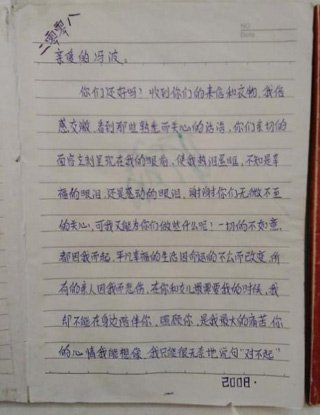 二零零八
NO
Date
亲爱的冯波。
你们还好吗？收到你们的来信和衣物，我信
慈交嫩，看到那些熟悉而关心的话语，你们亲切的
面容立刻呈现在我的眼前，使我热泪盈眶，不知是幸
福的眼泪，还是感动的眼泪，谢谢你们无微不至
的关心，可我又能为你们做些什么呢！一切的不如意，
都因我而起，平凡幸福的生活因命运的不公而改变，所
有的亲人因我而悲伤，在你和女儿最需要我的时候，我
却不能在身边陪伴你，照顾你，是我最大的痛苦，你
的心情我能想像，我只能很无奈地说句“对不起”
2008.